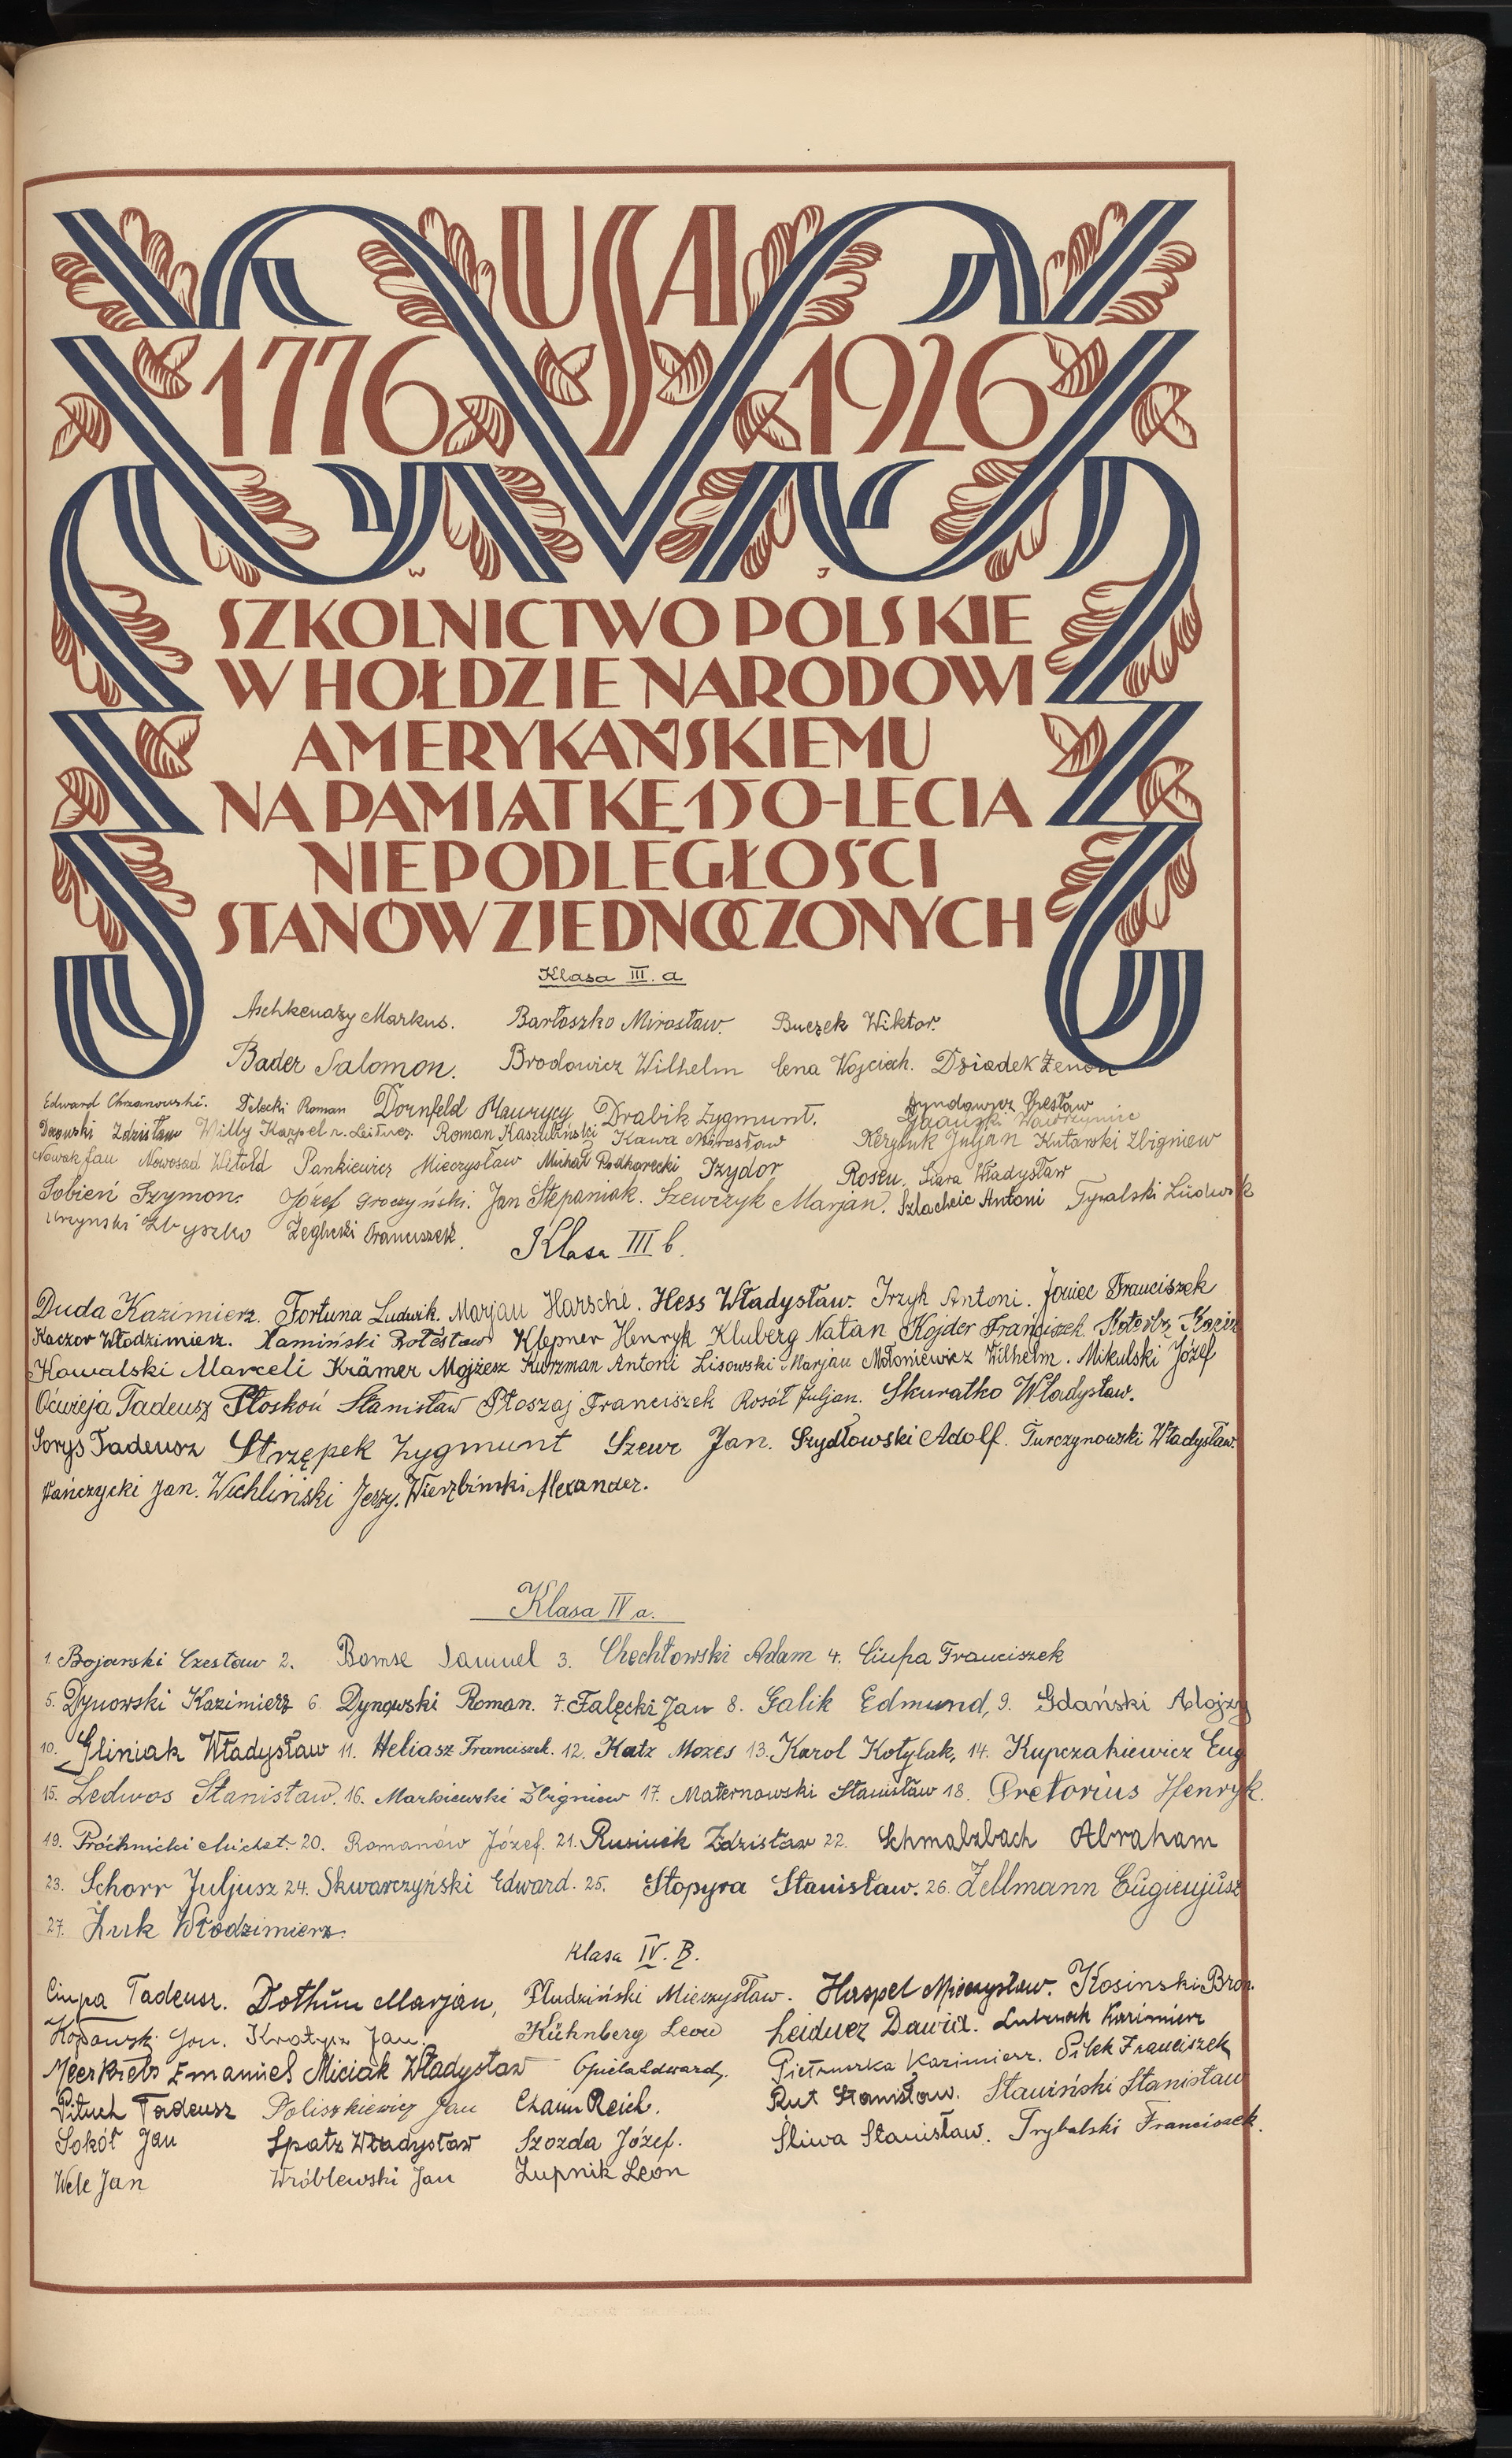 USA
1776 1926
W J
SZKOLNICTWO POLSKIE
W HOŁDZIE NARODOWI
AMERYKAŃSKIEMU
NA PAMIĄTKĘ 150-LECIA
NIEPODLEGŁOŚCI
STANÓW ZJEDNOCZONYCH
Klasa III. a
Aschkenazy Markus. Bartoszko Mirosław. Buczek Wiktor.
Bader Salomon. Brodowicz Wilhelm Cena Wojciech. Dziadek Zenon
Edward Chrzanowski. Roman Dornfeld Maurycy Drabik Zygmunt. Czesław
Zdzisław Willy Karpel r. Leitner. Roman Kaszubiński Kawa Mirosław Julján Kutarski Zbigniew
Nowak Jan Nowosad Witold Pankiewicz Mieczysław Michał Podhorecki Izydor Rosen. Siara Władysław
Sobień Szymon. Józef Groczyński. Jan Stepaniak. Szewczyk Marjan. Szlachcic Antoni Tyralski Ludwik
Zbyszko Franciszek.
Klasa III b.
Duda Kazimierz. Fortuna Ludwik. Marjan Harsche. Hess Władysław. Irzyk Antoni. Joniec Franciszek
Kaczor Włodzimierz. Kamiński Bolesław Klepner Henryk Kluberg Natan Kojder Franciszek.
Kowalski Marceli Krämer Mojżesz Kurzman Antoni Lisowski Marjan Mołoniewicz Wilhelm. Mikulski Józef
Oćwieja Tadeusz Płoskoń Stanisław Płoszaj Franciszek Rosół Juljan. Skuratko Władysław.
Sorys Tadeusz Strzępek Zygmunt Szewc Jan. Szydłowski Adolf. Turczynowski Władysław.
Wańczycki Jan. Wichliński Jerzy. Wierzbiński Alexander.
Klasa IV a.
1. Bojarski Czesław 2. Bomse Samuel 3. Chechłowski Adam 4. Ciupa Franciszek
5. Dynowski Kazimierz 6. Dynowski Roman. 7. Falęcki Jan 8. Galik Edmund, 9. Gdański Alojzy
10. Gliniak Władysław 11. Heliasz Franciszek. 12. Katz Mozes 13. Karol Kotylak, 14. Kupczakiewicz Eug
15. Ledwos Stanisław. 16. Markiewski Zbigniew 17. Maternowski Stanisław 18. Pretorius Henryk.
19. Próchnicki Michał. 20. Romanów Józef. 21. Rusinek Zdzisław 22. Schmalzbach Abraham
23. Schorr Juljusz 24. Skwarczyński Edward. 25. Stopyra Stanisław. 26. Zellmann Eugienjusz
27. Żuk Włodzimierz.
Klasa IV. B.
Ciupa Tadeusz. Dothun Marjan, Fludziński Mieczysław. Haspel Mieczysław. Kosinski Bron.
Jan. Jan. Kühnberg Leon Leidner Dawid. Kazimierz
Meerkrebs Emanuel Miciak Władysław Opiela Edward. Pietruszka Kazimierz. Pilek Franciszek
Pituch Tadeusz Poliszkiewicz Jan Chaim Reich. Rut Stanisław. Stawiński Stanisław
Sokół Jan Spatz Władysław Szozda Józef. Śliwa Stanisław. Trybalski Franciszek.
Wele Jan Wróblewski Jan Żupnik Leon